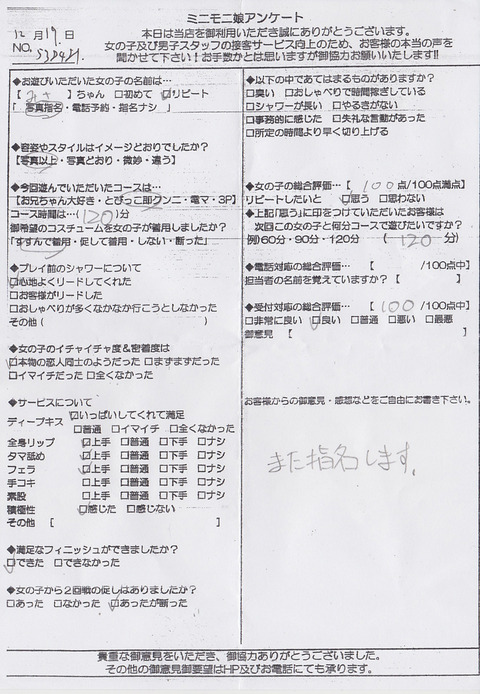 ミニモニ娘アンケート
12月17日
NO.
本日は当店を御利用いただき誠にありがとうございます。
女の子及び男子スタッフの接客サービス向上のため、お客様の本当の声を
聞かせて下さい!お手数かとは思いますが御協力お願いいたします!!
◆お遊びいただいた女の子の名前は…
【 みさ 】ちゃん □初めて □リピート
「 写真指名・電話予約・指名ナシ 」
◆容姿やスタイルはイメージとおりでしたか?
【写真以上・写真どおり・微妙・違う】
◆今回遊んでいただいたコースは…
【お兄ちゃん大好き・とびっこ即クンニ・電マ・3P】
コース時間は…(120)分
御希望のコスチュームを女の子が着用しましたか?
「すすんで着用・促して着用・しない・断った」
◆プレイ前のシャワーについて
□心地よくリードしてくれた
□お客様がリードした
□おしゃべりが多くなかなか行こうとしなかった
その他( )
◆女の子のイチャイチャ度&密着度は
□本物の恋人同士のようだった □まずまずだった
□イマイチだった □全くなかった
◆サービスについて
ディープキス □いっぱいしてくれて満足
□普通 □イマイチ □全くなかった
全身リップ □上手 □普通 □下手 □ナシ
タマ舐め □上手 □普通 □下手 □ナシ
フェラ □上手 □普通 □下手 □ナシ
手コキ □上手 □普通 □下手 □ナシ
素股 □上手 □普通 □下手 □ナシ
積極性 □感じた □感じない
その他 [ ]
◆満足なフィニッシュができましたか?
□できた □できなかった
◆女の子から2回戦の促しはありましたか?
□あった □なかった □あったが断った
◆以下の中であてはまるものがありますか?
□臭い □おしゃべりで時間稼ぎしている
□シャワーが長い □やるきがない
□事務的に感じた □失礼な言動があった
□所定の時間より早く切り上げる
◆女の子の総合評価…【 100点/100点満点】
リピートしたいと □思う □思わない
◆上記「思う」に印をつけていただいたお客様は
次回この女の子と何分コースで遊びたいですか?
例)60分・90分・120分 ( 120 分)
◆電話対応の総合評価…【 /100点中】
担当者の名前を覚えていますか?【 】
◆受付対応の総合評価…【100/100点中】
□非常に良い □良い □普通 □悪い □最悪
御意見 【 】
お客様からの御意見・感想などをご自由にお書き下さい。
また指名します。
貴重な御意見をいただき、御協力ありがとうございました。
その他の御意見御要望はHP及びお電話にても承ります。